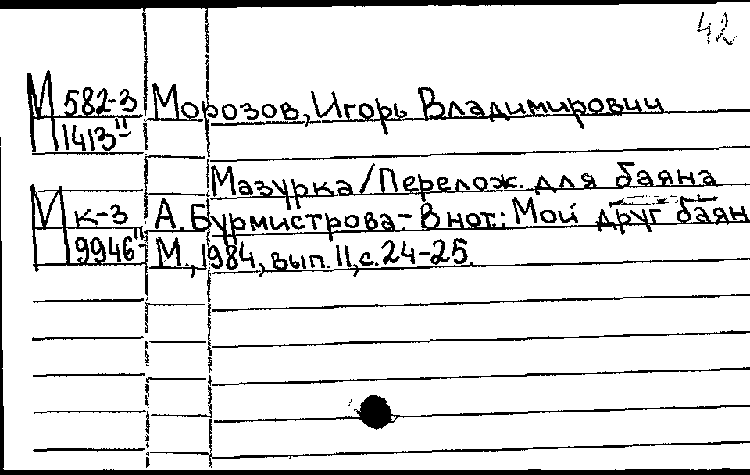 42
М 582-3 Морозов, Игорь Владимирович
1413 II
Мазурка / Перелож. для баяна
М к-3 А. Бурмистрова.- В нот.: Мой друг баян
9946 II М., 1984, вып. 11, с. 24-25.